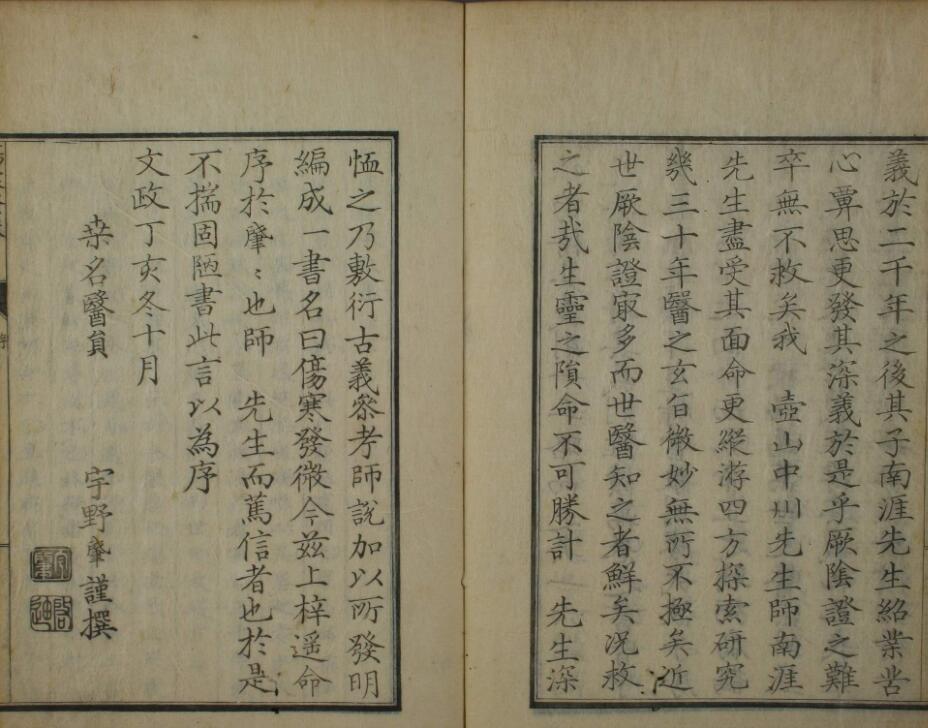 義於二千年之後其子南涯先生紹業苦
心覃思更發其深義於是乎厥陰證之難
卒無不救矣我　壺山中川先生師南涯
先生盡受其面命更縱游四方探索研究
幾三十年醫之玄旨微妙無所不極矣近
世厥陰證㝡多而世醫知之者鮮矣况救
之者哉生靈之隕命不可勝計　先生深
恤之乃敷衍古義叅考師說加以所發明
編成一書名曰傷寒發微今茲上梓遥命
序於肇〻也師　先生而篤信者也於是
不揣固陋書此言以為序
文政丁亥冬十月
桒名醫員　宇野肇謹撰